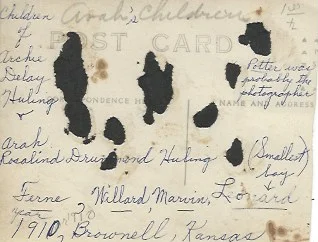 Children of Archie Delay Huling
&
Arah Rosalind Drummond Huling
Arah's Children
POST CARD
Potter was probably the photographer
NAME AND ADDRESS
(Smallest boy)
Ferne, Willard, Marvin, Lovard
year 1910, Brownell, Kansas